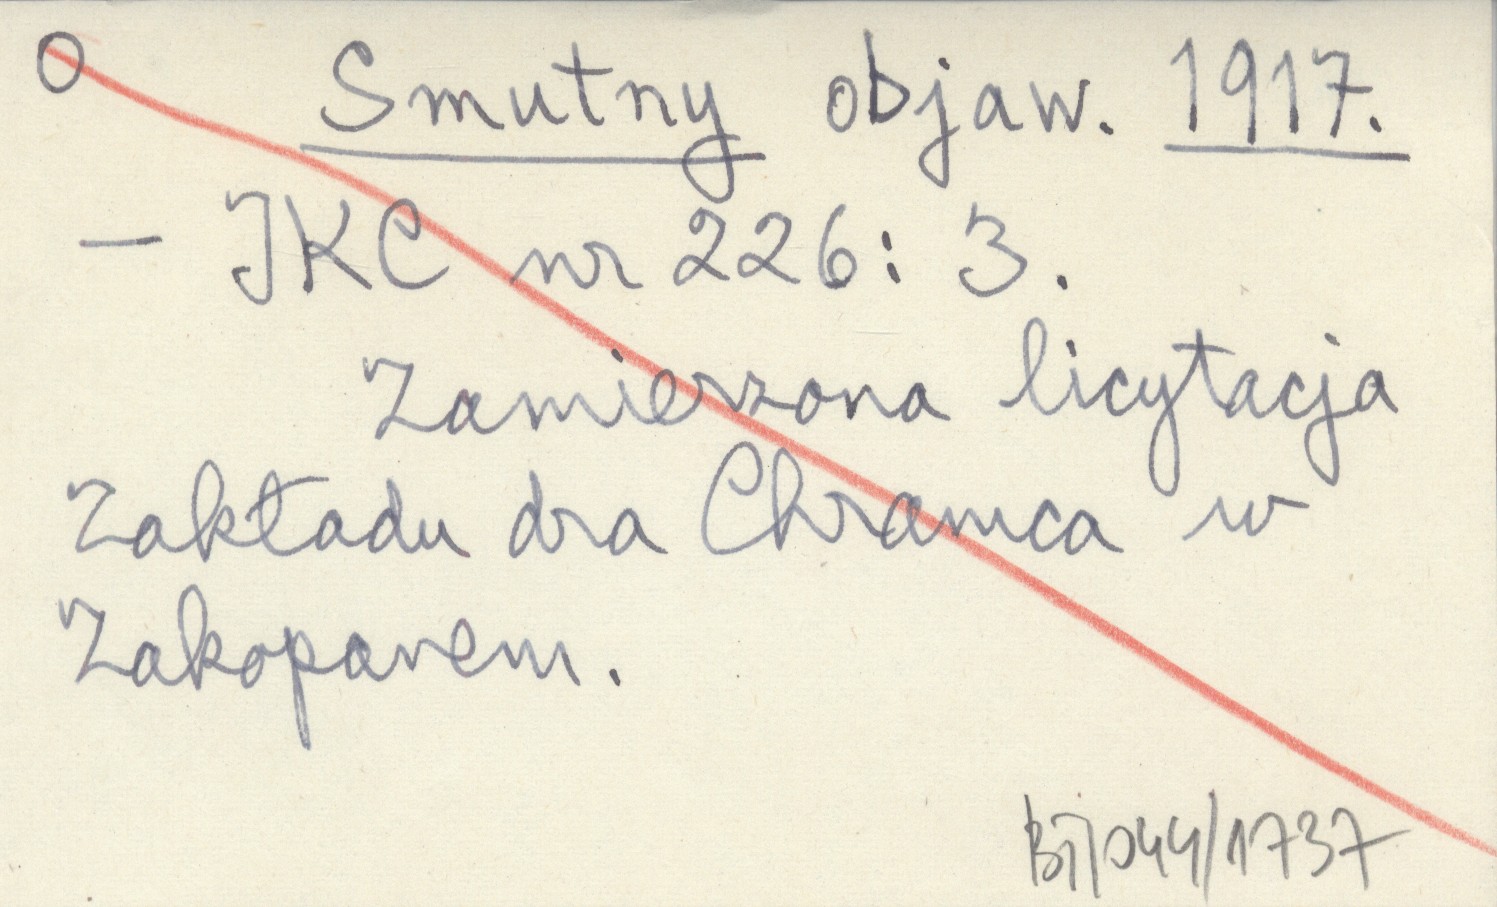 O Smutny objaw. 1917.
— JKC nr 226: 3.
Zamierzona licytacja
Zakładu dra Chramca w
Zakopanem.
BJ/044/1737